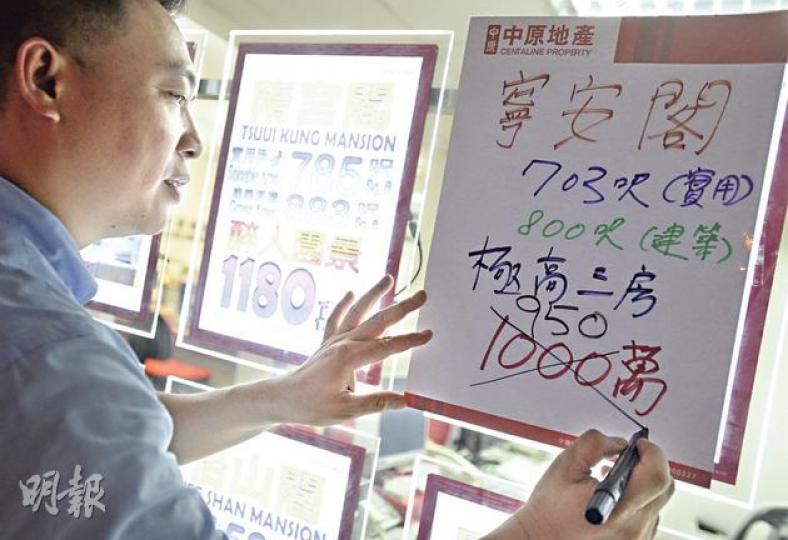 中原
中原地產
CENTALINE PROPERTY
寧安閣
703呎(實用)
800呎(建築)
極高三房
950
1000萬
宮閣
TSUUI KUNG MANSION
785呎
883呎
醉人園景
1180萬
山閣
SHAN MANSION
明報